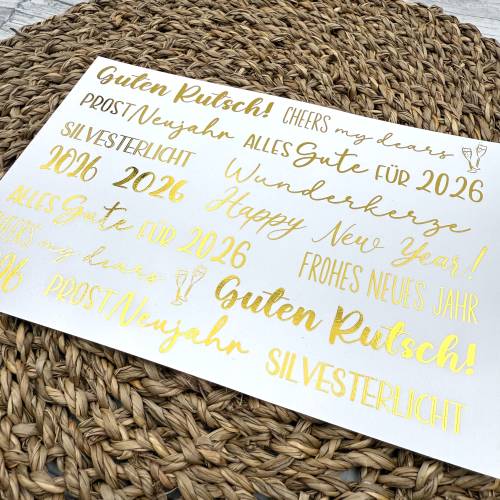 Guten Rutsch! CHEERS my dears
PROST Neujahr ALLES Gute FÜR 2026
SILVESTERLICHT Wunderkerze
2026 2026 Happy New Year!
ALLES Gute FÜR 2026 FROHES NEUES JAHR
my dears Guten Rutsch!
PROST Neujahr SILVESTERLICHT